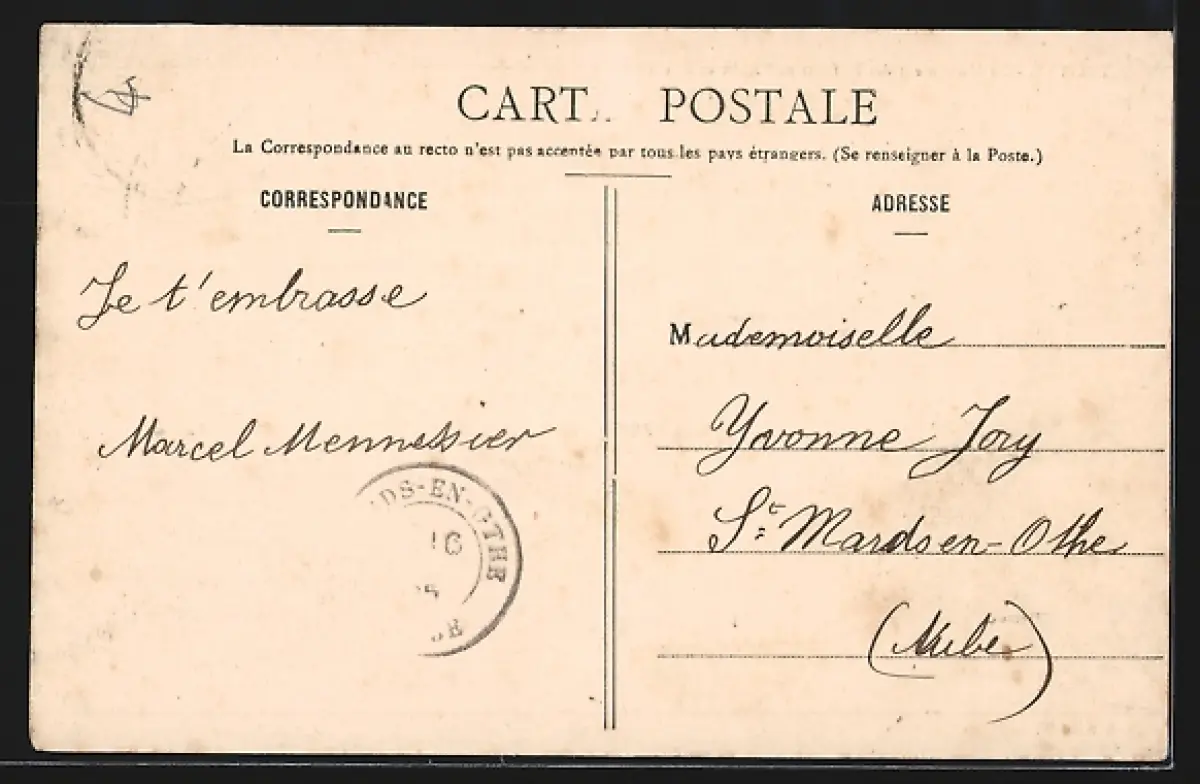 CART POSTALE
La Correspondance au recto n'est pas acceptée par tous les pays étrangers. (Se renseigner à la Poste.)
CORRESPONDANCE
ADRESSE
Je t'embrasse
Marcel Mennessier
Mademoiselle
Yvonne Jory
St Mards en-Othe
(Aube)
DS-EN-OTHE
16
BE